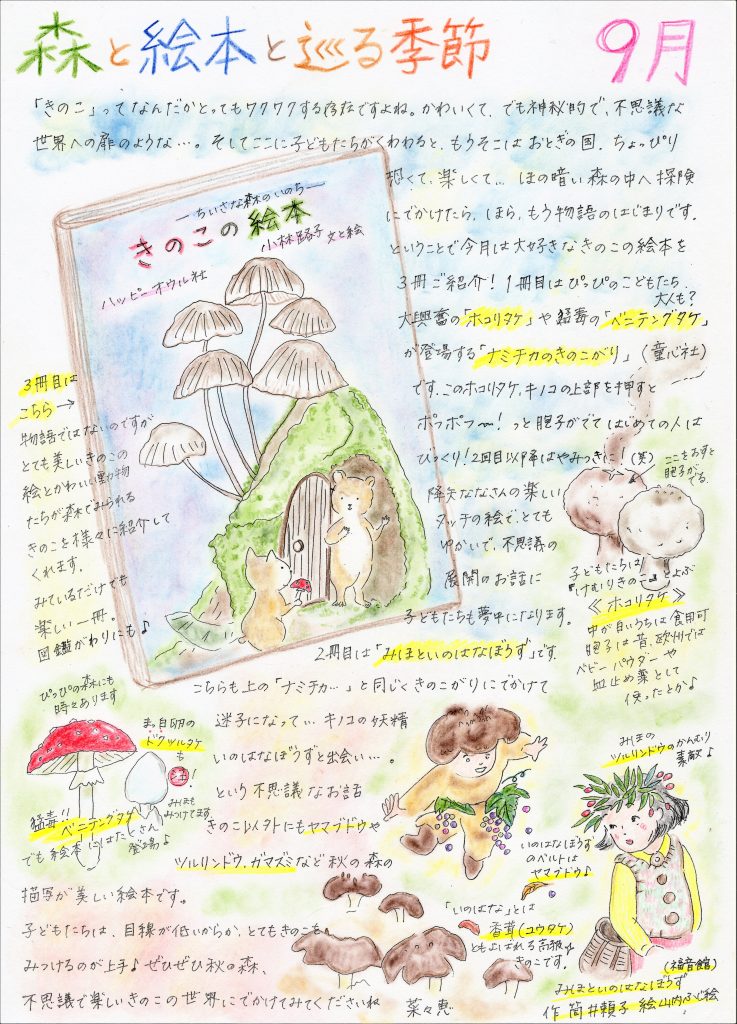 森と絵本と巡る季節
9月
「きのこ」ってなんだかとってもワクワクする存在ですよね。かわいくて、でも神秘的で、不思議な
世界への扉のような…。そしてここに子どもたちがくわわると、もうそこはおとぎの国。ちょっぴり
恐くて、楽しくて… ほの暗い森の中へ探険
にでかけたら、ほら、もう物語のはじまりです。
ということで今月は大好きなきのこの絵本を
3冊ご紹介！1冊目はぴっぴのこどもたち
大人も?
大興奮の「ホコリタケ」や猛毒の「ベニテングタケ」
が登場する「ナミチカのきのこがり」（童心社）
です。このホコリタケ、キノコの上部を押すと
ポフポフ〜！っと胞子がでてはじめての人は
びっくり！2回目以降はやみつきに！(笑)
降矢ななさんの楽しい
タッチの絵で、とても
ゆかいで、不思議の
展開のお話に
子どもたちも夢中になります。
ここをおすと
胞子がでる
子どもたちは
『けむりきのこ』とよぶ
《ホコリタケ》
中が白いうちは食用可
胞子は昔、欧州では
ベビーパウダーや
血止め薬として
使ったとか♪
―ちいさな森のいのち―
きのこの絵本
小林路子 文と絵
ハッピーオウル社
3冊目は
こちら→
物語ではないのですが
とても美しいきのこの
絵とかわいい動物
たちが森でみられる
きのこを様々に紹介して
くれます。
みているだけでも
楽しい一冊。
図鑑がわりにも♪
2冊目は「みほといのはなぼうず」です。
こちらも上の「ナミチカ…」と同じくきのこがりにでかけて
迷子になって… キノコの妖精
いのはなぼうずと出会い…。
という不思議なお話
きのこ以外にもヤマブドウや
ツルリンドウ、ガマズミなど秋の森の
描写が美しい絵本です。
子どもたちは、目線が低いからか、とてもきのこを
みつけるのが上手♪ぜひぜひ秋の森、
不思議で楽しいきのこの世界にでかけてみてくださいね
菜々恵
ぴっぴの森にも
時々あります
まっ白卵の
ドクツルタケ
も
毒！
みほも
みつけてます
猛毒!!
ベニテングタケ
でも絵本にはたくさん
登場♪
みほの
ツルリンドウのかんむり
素敵♪
いのはなぼうず
のベルトは
ヤマブドウ♪
「いのはな」とは
香茸(コウタケ)
ともよばれる高級な
きのこです。
(福音館)
みほといのはなぼうず
作 筒井頼子 絵 山内ふじ絵